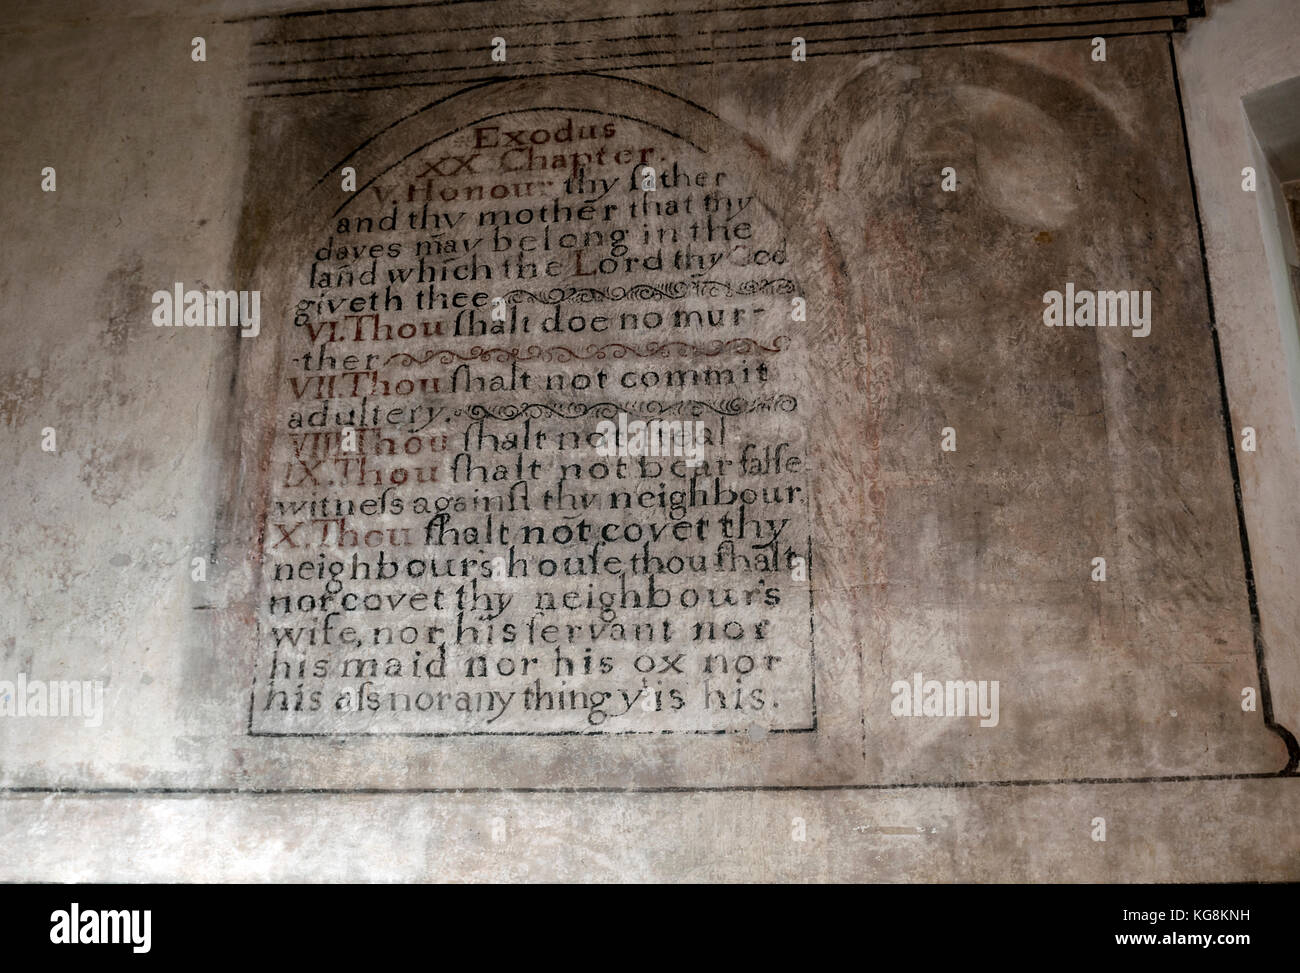 Exodus
XX Chapter.
V. Honour thy father
and thy mother that thy
dayes may be long in the
land which the Lord thy God
giveth thee.
VI. Thou ſhalt doe no mur-
-ther
VII. Thou ſhalt not commit
adultery.
VIII. Thou ſhalt not ſteal
IX. Thou ſhalt not bear falſe
witneſs againſt thy neighbour.
X. Thou ſhalt not covet thy
neighbour's houſe thou ſhalt
not covet thy neighbour's
wife, nor his ſervant nor
his maid nor his ox nor
his aſs nor any thing yt is his.
alamy
alamy
alamy
alamy
alamy
alamy
alamy
Image ID: KG8KNH
www.alamy.com